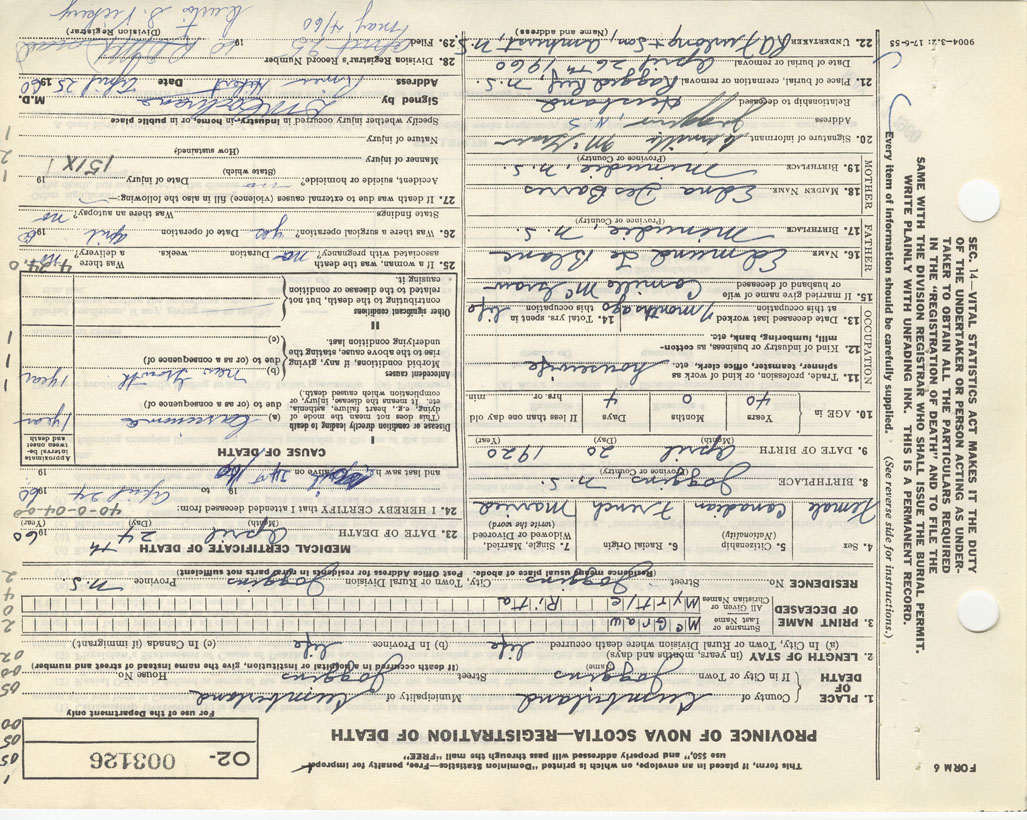 This form, if placed in an envelope, on which is printed "Dominion Statistics—Free, penalty for improper
use $50," and properly addressed will pass through the mail "FREE"
FORM 6
PROVINCE OF NOVA SCOTIA—REGISTRATION OF DEATH
02- 003126
For use of the Department only
1. PLACE OF DEATH
County of Cumberland Municipality of Cumberland
If in City or Town Joggins Street Joggins House No.
(Name) (If death occurred in a hospital or institution, give the name instead of street and number)
2. LENGTH OF STAY (in years, months and days)
(a) In City, Town or Rural Division where death occurred life (b) In Province life (c) In Canada (if immigrant)
3. PRINT NAME OF DECEASED
Surname or Last Name McGraw
All Given or Christian Names Myrtle Rita
RESIDENCE No. Street Joggins City, Town or Rural Division Joggins Province N.S.
(Residence means usual place of abode. Post Office Address for residents in rural parts not sufficient)
4. Sex Female
5. Citizenship (Nationality) Canadian
6. Racial Origin French
7. Single, Married, Widowed or Divorced (write the word) Married
8. BIRTHPLACE Joggins, N.S.
(Province or Country)
9. DATE OF BIRTH April 20 1920
(Month) (Day) (Year)
10. AGE in 40 Years 0 Months 4 Days If less than one day old hrs. or min.
OCCUPATION
11. Trade, profession, or kind of work as spinner, teamster, office clerk, etc. housewife
12. Kind of industry or business, as cotton-mill, lumbering, bank, etc.
13. Date deceased last worked at this occupation 7 months ago
14. Total yrs. spent in this occupation life
15. If married give name of wife or husband of deceased Camille McGraw
FATHER
16. NAME Edmund Le Blanc
17. BIRTHPLACE Minudie, N.S.
(Province or Country)
MOTHER
18. MAIDEN NAME Edna DesBarres
19. BIRTHPLACE Minudie, N.S.
(Province or Country)
20. Signature of informant Camille McGraw
Address Joggins, N.S.
Relationship to deceased Husband
21. Place of burial, cremation or removal Ragged Reef, N.S.
Date of burial or removal April 26th, 1960
22. UNDERTAKER R.A. Furlong & Son, Amherst, N.S.
(Name and address)
9004-3-2: 17-6-55
MEDICAL CERTIFICATE OF DEATH
23. DATE OF DEATH April 24th 1960
(Month) (Day) (Year)
40-0-04-0
24. I HEREBY CERTIFY that I attended deceased from:
19 to April 24 1960
and last saw h alive on 24th 19
CAUSE OF DEATH
Approximate interval between onset and death
I
Disease or condition directly leading to death
(This does not mean the mode of dying, e.g., heart failure, asthenia, etc. It means the disease, injury, or complication which caused death).
(a) Carcinoma 1 year
due to (or as a consequence of)
Antecedent causes
Morbid conditions, if any, giving rise to the above cause, stating the underlying condition last.
(b) new growth 1 year
due to (or as a consequence of)
(c)
II
Other significant conditions contributing to the death, but not related to the disease or condition causing it.
25. If a woman, was the death associated with pregnancy? no Duration weeks. Was there a delivery?
26. Was there a surgical operation? yes Date of operation April 1960
State findings Was there an autopsy? no
27. If death was due to external causes (violence) fill in also the following:—
Accident, suicide or homicide? no Date of injury 19
(State which)
Manner of injury 151X
(How sustained)
Nature of injury
Specify whether injury occurred in industry, in home, or in public place
Signed by M.D.
Address River Hebert Date April 25 1960
28. Division Registrar's Record Number
29. Filed
May 4/60
(Division Registrar)
SEC. 14—VITAL STATISTICS ACT MAKES IT THE DUTY
OF THE UNDERTAKER OR PERSON ACTING AS UNDER-
TAKER TO OBTAIN ALL THE PARTICULARS REQUIRED
IN THE "REGISTRATION OF DEATH" AND TO FILE THE
SAME WITH THE DIVISION REGISTRAR WHO SHALL ISSUE THE BURIAL PERMIT.
WRITE PLAINLY WITH UNFADING INK. THIS IS A PERMANENT RECORD.
Every item of information should be carefully supplied. (See reverse side for instructions.)